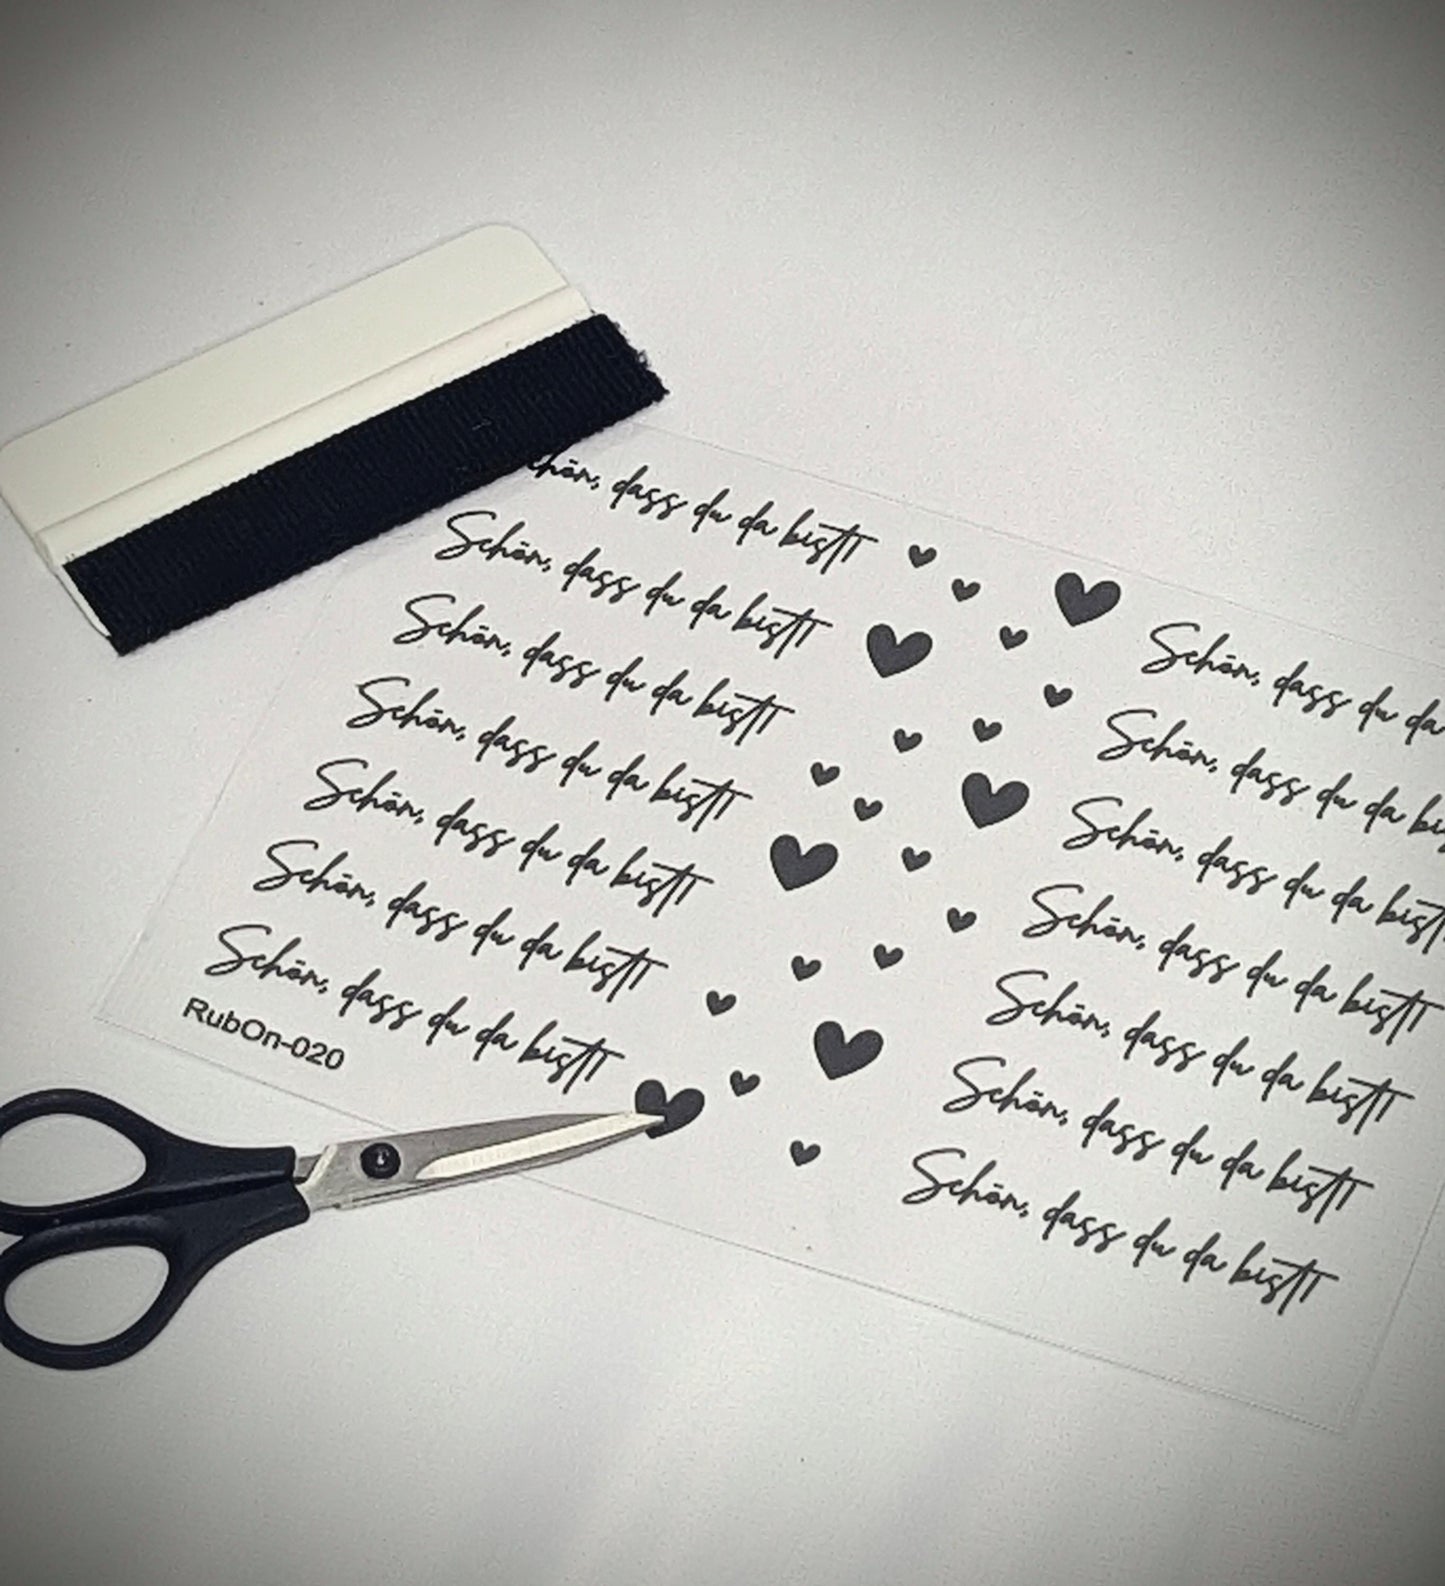 chön, dass du da bist
Schön, dass du da bist
Schön, dass du da bist
Schön, dass du da bist
Schön, dass du da bist
Schön, dass du da bist
Schön, dass du da bist
RubOn-020
Schön, dass du da
Schön, dass du da bi
Schön, dass du da bist
Schön, dass du da bist
Schön, dass du da bist
Schön, dass du da bist
Schön, dass du da bist